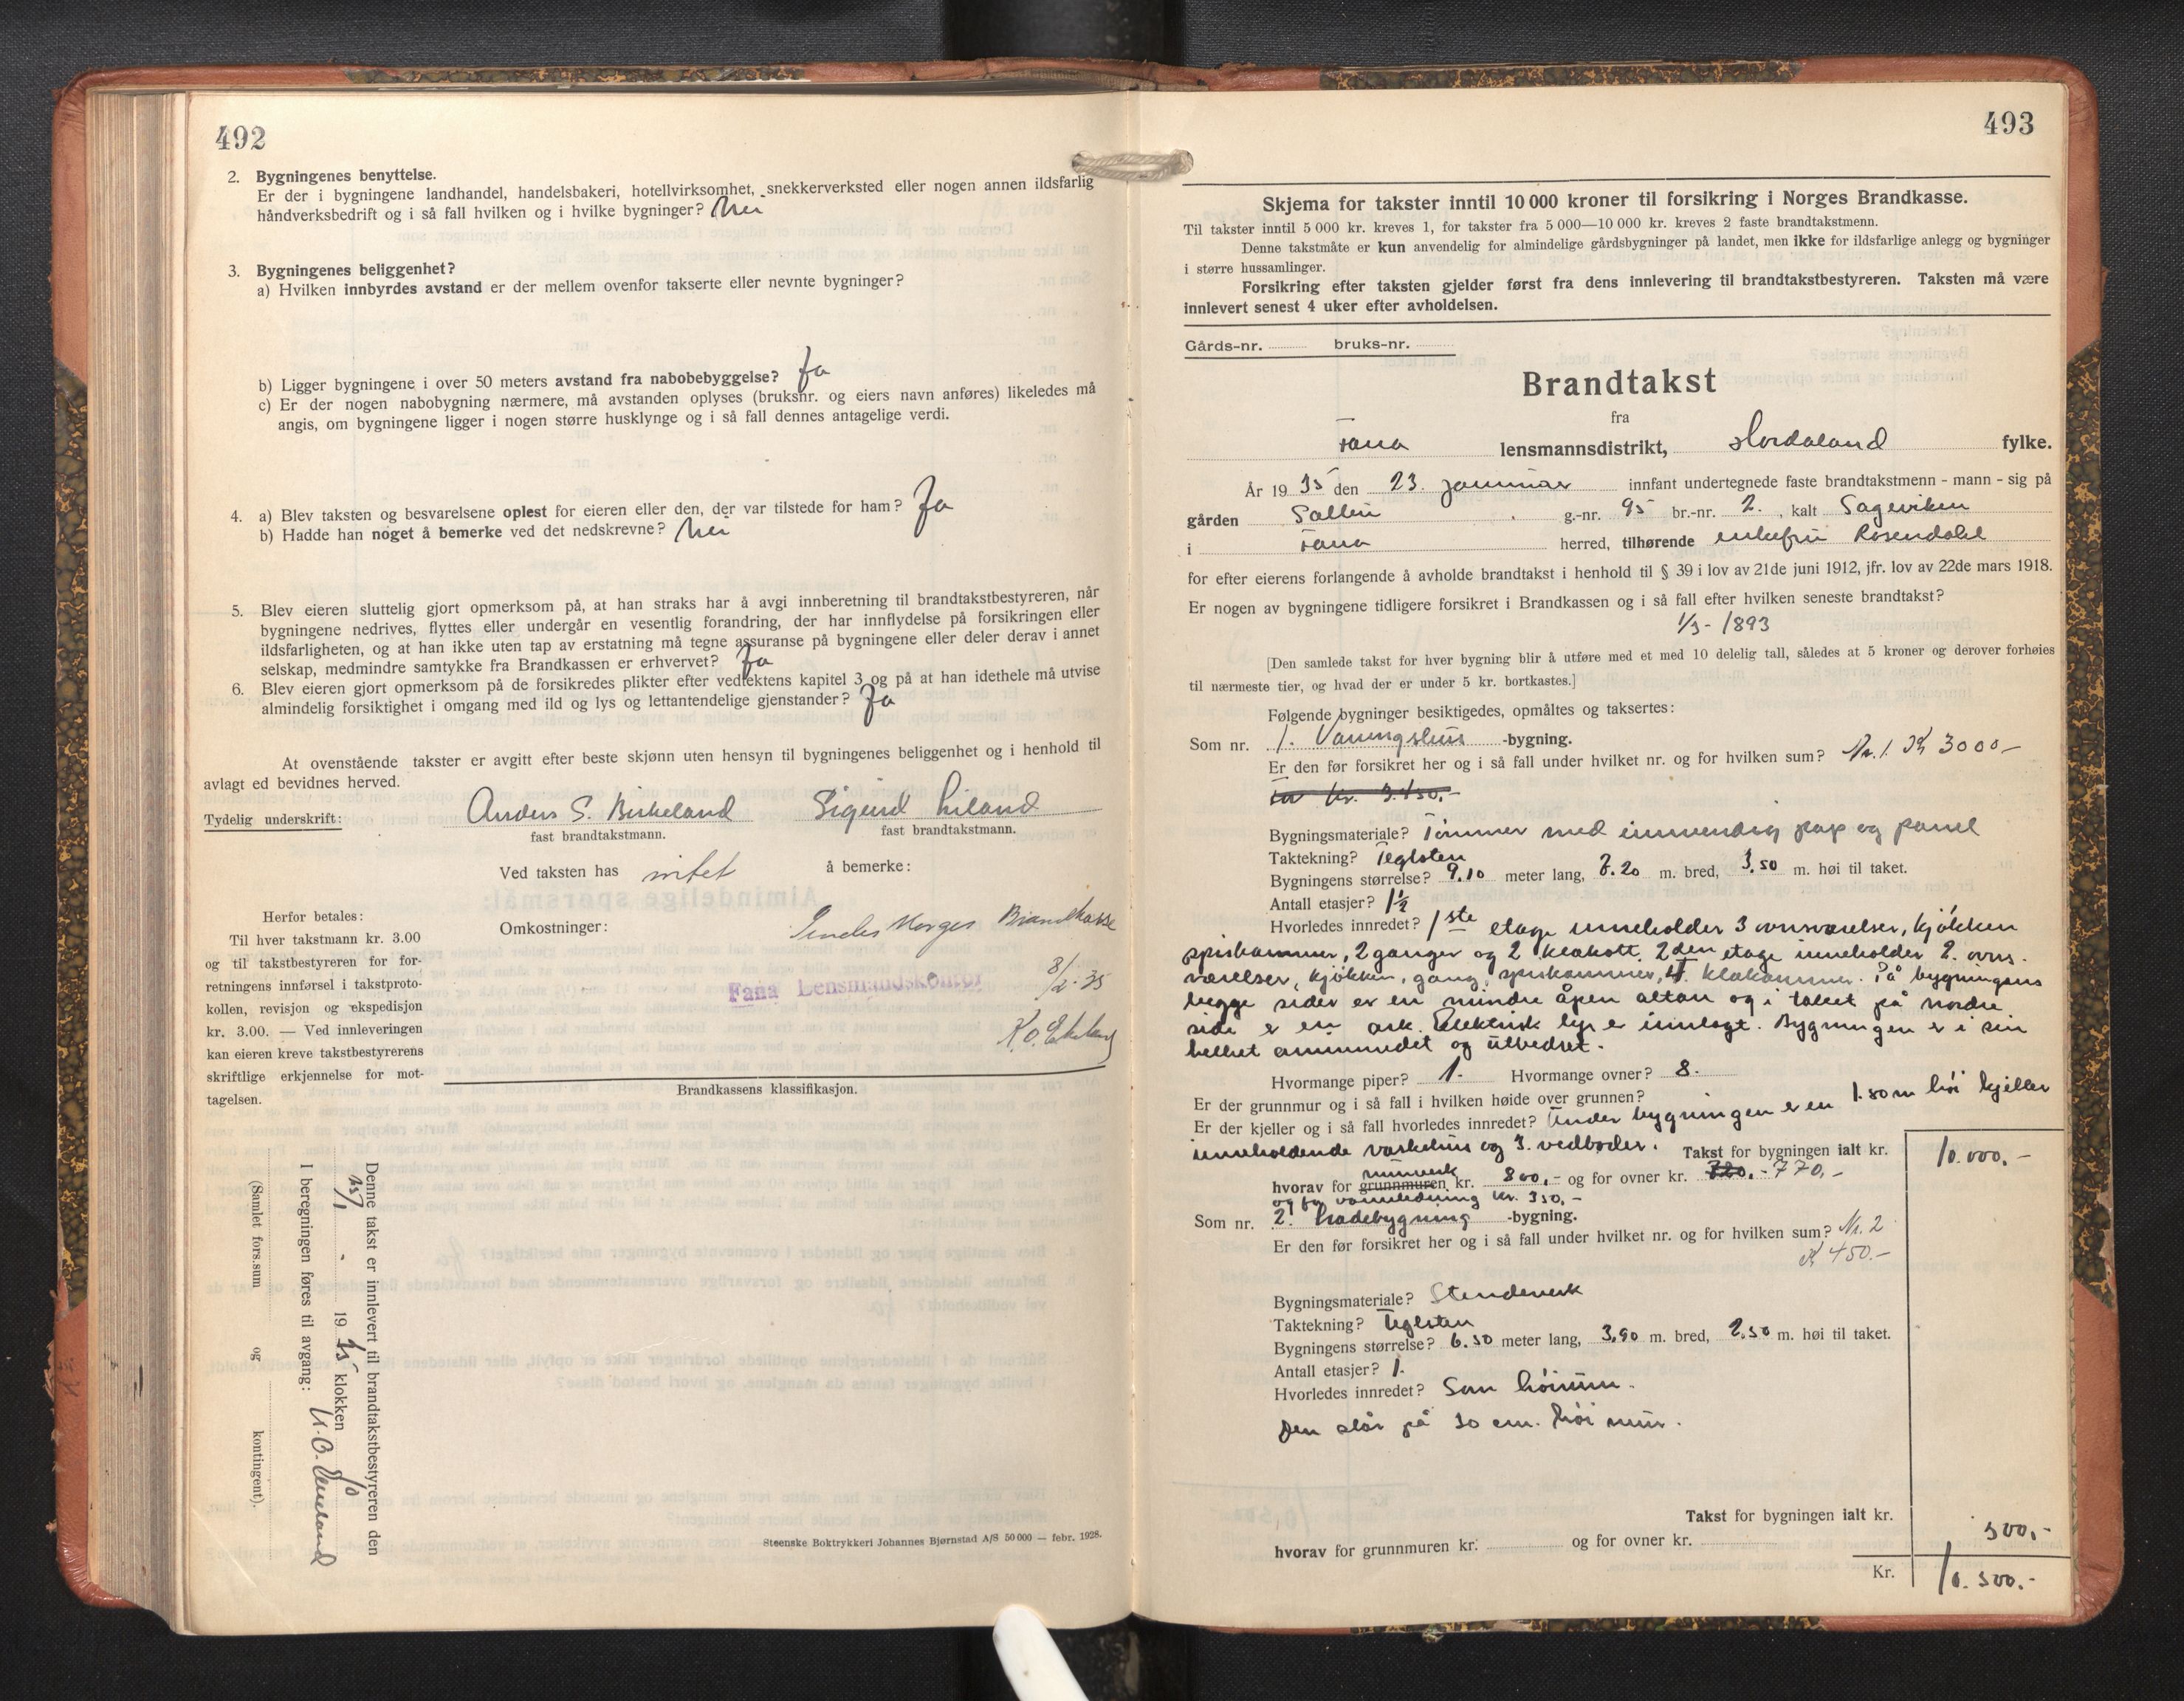 492
2. Bygningenes benyttelse.
Er der i bygningene landhandel, handelsbakeri, hotellvirksomhet, snekkerverksted eller nogen annen ildsfarlig
håndverksbedrift og i så fall hvilken og i hvilke bygninger? Nei
3. Bygningenes beliggenhet?
a) Hvilken innbyrdes avstand er der mellem ovenfor takserte eller nevnte bygninger?
b) Ligger bygningene i over 50 meters avstand fra nabobebyggelse? Ja
c) Er der nogen nabobygning nærmere, må avstanden oplyses (bruksnr. og eiers navn anføres) likeledes må
angis, om bygningene ligger i nogen større husklynge og i så fall dennes antagelige verdi.
4. a) Blev taksten og besvarelsene oplest for eieren eller den, der var tilstede for ham? Ja
b) Hadde han noget å bemerke ved det nedskrevne? Nei
5. Blev eieren sluttelig gjort opmerksom på, at han straks har å avgi innberetning til brandtakstbestyreren, når
bygningene nedrives, flyttes eller undergår en vesentlig forandring, der har innflydelse på forsikringen eller
ildsfarligheten, og at han ikke uten tap av erstatning må tegne assuranse på bygningene eller deler derav i annet
selskap, medmindre samtykke fra Brandkassen er erhvervet? Ja
6. Blev eieren gjort opmerksom på de forsikredes plikter efter vedtektens kapitel 3 og på at han idethele må utvise
almindelig forsiktighet i omgang med ild og lys og lettantendelige gjenstander? Ja
At ovenstående takster er avgitt efter beste skjønn uten hensyn til bygningenes beliggenhet og i henhold til
avlagt ed bevidnes herved.
Tydelig underskrift: Anders S. Birkeland Sigurd Liland
fast brandtakstmann. fast brandtakstmann.
Ved taksten has intet å bemerke:
Herfor betales:
Til hver takstmann kr. 3.00
og til takstbestyreren for for-
retningens innførsel i takstproto-
kollen, revisjon og ekspedisjon
kr. 3.00. — Ved innleveringen
kan eieren kreve takstbestyrerens
skriftlige erkjennelse for mot-
tagelsen.
Omkostninger:
Sendes Norges Brandkasse
Fana Lensmandskontor 8/2-35
Brandkassens klassifikasjon.
Denne takst er innlevert til brandtakstbestyreren den
19 35 klokken 10
I beregningen føres til avgang:
(Samlet fors.sum og kontingent).
Steenske Boktrykkeri Johannes Bjørnstad A/S 50 000 — febr. 1928.
493
Skjema for takster inntil 10 000 kroner til forsikring i Norges Brandkasse.
Til takster inntil 5 000 kr. kreves 1, for takster fra 5 000—10 000 kr. kreves 2 faste brandtakstmenn.
Denne takstmåte er kun anvendelig for almindelige gårdsbygninger på landet, men ikke for ildsfarlige anlegg og bygninger
i større hussamlinger.
Forsikring efter taksten gjelder først fra dens innlevering til brandtakstbestyreren. Taksten må være
innlevert senest 4 uker efter avholdelsen.
Gårds-nr. bruks-nr.
Brandtakst
fra
Fana lensmannsdistrikt, Hordaland fylke.
År 19 35 den 23. januar innfant undertegnede faste brandtakstmenn - mann - sig på
gården Søllen g.-nr. 95 br.-nr. 2. , kalt Sageviken
i Fana herred, tilhørende enkefru Rosendahl
for efter eierens forlangende å avholde brandtakst i henhold til § 39 i lov av 21de juni 1912, jfr. lov av 22de mars 1918.
Er nogen av bygningene tidligere forsikret i Brandkassen og i så fall efter hvilken seneste brandtakst?
1/3-1893
[Den samlede takst for hver bygning blir å utføre med et med 10 delelig tall, således at 5 kroner og derover forhøies
til nærmeste tier, og hvad der er under 5 kr. bortkastes.]
Følgende bygninger besiktigedes, opmåltes og taksertes:
Som nr. 1. Vaaningshus -bygning.
Er den før forsikret her og i så fall under hvilket nr. og for hvilken sum? Nr. 1 Kr 3000-
Bygningsmateriale? Tømmer med innvendig pap og panel
Taktekning? Teglsten
Bygningens størrelse? 9.10 meter lang, 8.20 m. bred, 3.50 m. høi til taket.
Antall etasjer? 1½
Hvorledes innredet? 1ste etage inneholder 3 ovnsværelser, kjøkken
spiskammer, 2 ganger og 2 klækott. 2den etage inneholder 2. ovns.
værelser, kjøkken, gang, spiskammer, 4. klækammer. På bygningens
begge sider er en mindre åpen altan og i taket på nordre
side er en ark. Elektrisk lys er innlagt. Bygningen er i sin
helhet ominnredet og utbedret.
Hvormange piper? 1. Hvormange ovner? 8.
Er der grunnmur og i så fall i hvilken høide over grunnen?
Er der kjeller og i så fall hvorledes innredet? Under bygningen er en 1.80 m høi kjeller
inneholdende vaskehus og 3. vedboder. Takst for bygningen ialt kr. 10.000,-
hvorav for grunnmuren murverk kr. 800,- og for ovner kr. 720,- 770,-
og for vannledning kr. 350,-
Som nr. 2. Ladebygning -bygning.
Er den før forsikret her og i så fall under hvilket nr. og for hvilken sum? Nr. 2
Kr 450.-
Bygningsmateriale? Stenderverk
Taktekning? Teglsten
Bygningens størrelse? 6.50 meter lang, 3.90 m. bred, 2.50 m. høi til taket.
Antall etasjer? 1.
Hvorledes innredet? Som høirum.
Den står på 30 cm. høi mur.
Takst for bygningen ialt kr. 500,-
hvorav for grunnmuren kr. og for ovner kr.
Kr. 10.500.-